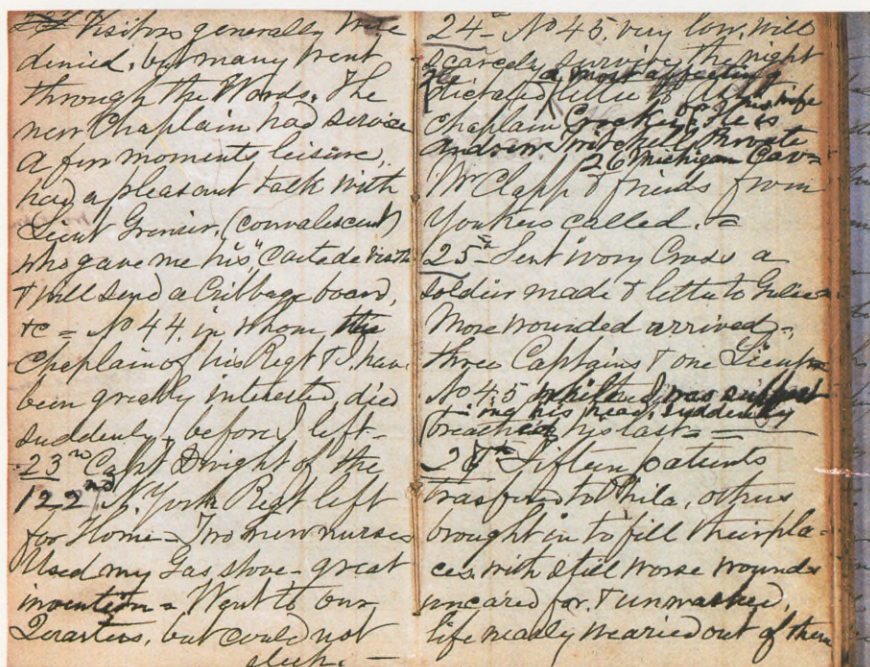 22d Visitors generally were
denied, but many went
through the Wards. The
new Chaplain had service
a few moments leisure,
had a pleasant talk with
Lieut (convalescent)
who gave me his, "Carte de visite
& will send a Cribbage board,
&c = No 44, in whom the
Chaplain of his Regt & I have
been greatly interested, died
suddenly, before I left -
23rd Capt Dwight of the
122nd N. York Regt left
for Home = Two new nurses
Used my Gas, stove - great
invention = Went to our
Quarters, but could not
sleep. —
24th No 45, very low, will
scarcely survive the night
He a most affecting
dictated letter to Asst
for his wife
Chaplain He is
Andrew Mitchell, Private
26 Michigan Cav =
Mr Clapp & friends from
Yonkers called. =
25th Sent ivory Cross a
soldier made & letter to
More wounded arrived =,
three Captains & one Lieut =
No 45 while I was support
ing his head, suddenly
breathed his last = =
26th Fifteen patients
trasfered to Phila, others
brought in to fill their pla-
ces, with still worse wounds
uncared for, & unwashed,
life nearly wearied out of them